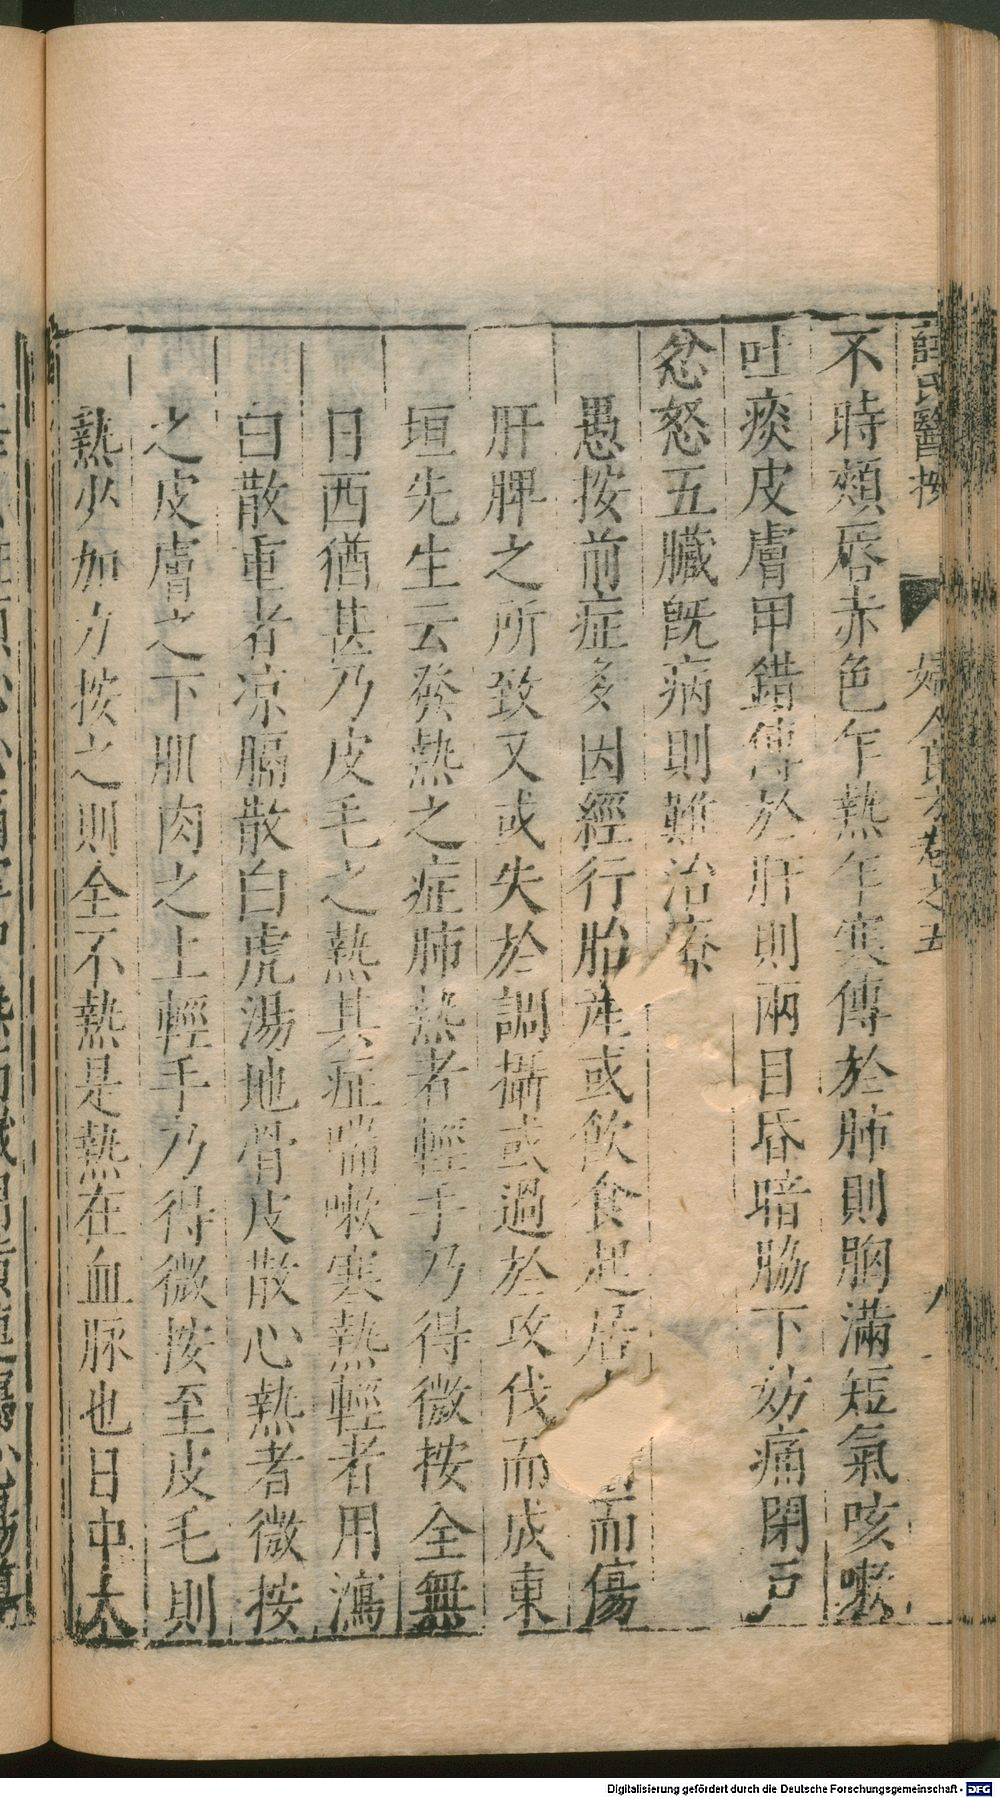 薛氏醫按 婦人良方卷之五 八
不時頰唇赤色乍熱乍寒傳於肺則胸滿短氣咳嗽
吐痰皮膚甲錯傳於肝則兩目昏暗脇下妨痛閉戸
忿怒五臟旣病則難治療
愚按前症多因經行胎産或飲食起居而傷
肝脾之所致又或失於調攝或過於攻伐而成東
垣先生云發熱之症肺熱者輕手乃得微按全無
日西猶甚乃皮毛之熱其症喘嗽寒熱輕者用瀉
白散重者凉膈散白虎湯地骨皮散心熱者微按
之皮膚之下肌肉之上輕手乃得微按至皮毛則
熱少加力按之則全不熱是熱在血脉也日中太
Digitalisierung gefördert durch die Deutsche Forschungsgemeinschaft - DFG